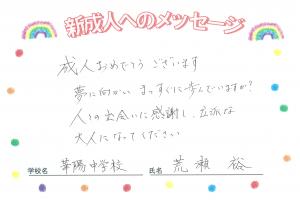 新成人へのメッセージ
成人おめでとうございます
夢に向かい まっすぐに歩んでいますか?
人との出会いに感謝し、立派な
大人になってください
学校名 華陽中学校 氏名 荒瀬 裕